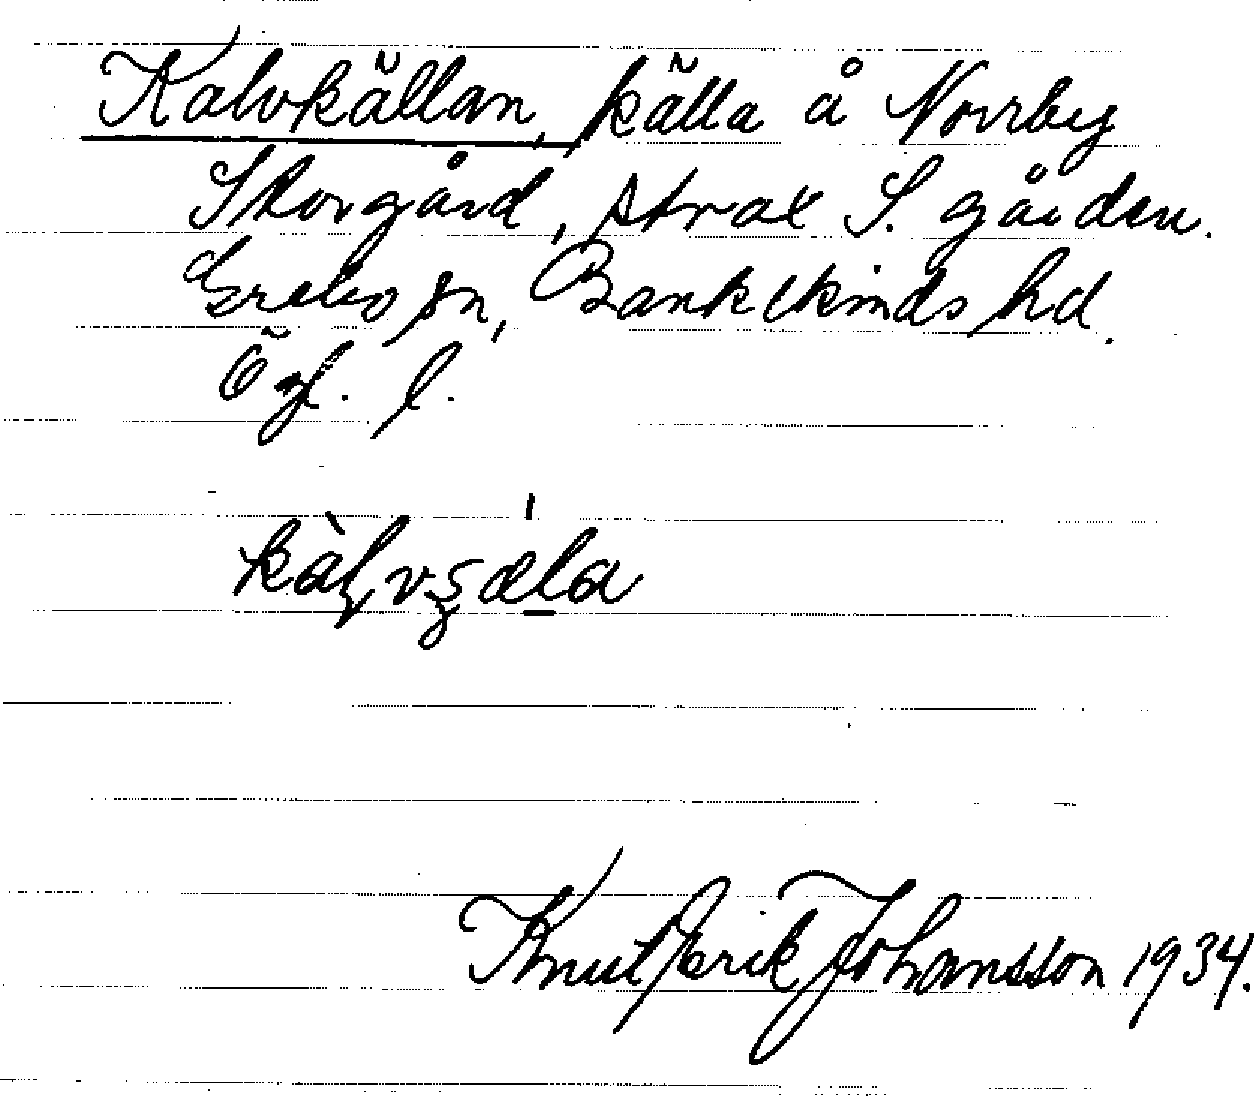 Kalvkällan, källa å Norrby
Storgård, strax S. gården.
Grebo sn, Bankekinds hd.
Ögl. l.
Knut Erik Johansson 1934.